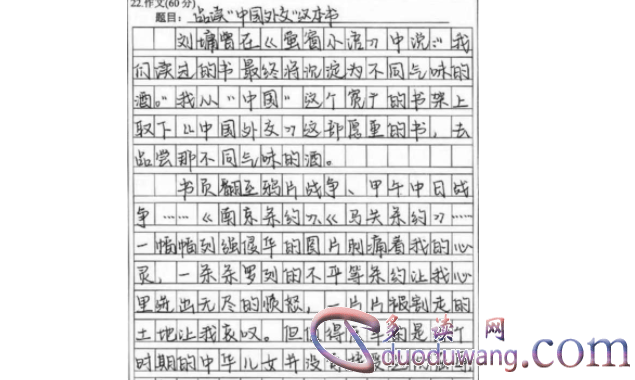 22.作文(60分)
题目：品读“中国外交”这本书
刘墉曾在《萤窗小语》中说：“我
们读过的书最终将沉淀为不同气味的
酒。”我从“中国”这个宽广的书架上
取下《中国外交》这部厚重的书，去
品尝那不同气味的酒。
书页翻至鸦片战争、甲午中日战
争……《南京条约》、《马关条约》……
一幅幅列强侵华的图片刺痛着我的心
灵，一条条罗列的不平等条约让我心
里迸出无尽的愤怒，一片片被割走的
土地让我哀叹。但值得
时期的中华儿女并没有
多读网
duoduwang.com